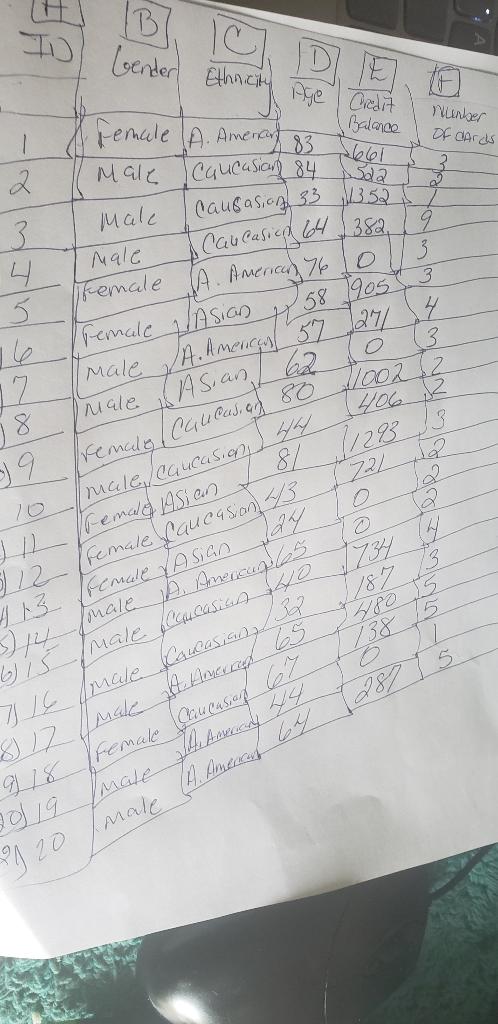 A B C D E F
ID Gender Ethnicity Age Credit Balance Number of cards
1 Female A. American 83 661 3
2 Male Caucasian 84 522 2
3 Male Causasian 33 1352 1
4 Male Caucasian 64 382 9
5 Female A. American 76 0 3
6 Female Asian 58 905 3
7 Male A. American 57 271 4
8 Male Asian 62 0 3
) 9 Female Caucasian 80 1002 2
10 Male Caucasian 44 406 2
) 11 Female Asian 81 1293 3
) 12 Female Caucasian 43 721 2
) 13 Female Asian 24 0 2
5) 14 Male A. American 65 0 2
6) 15 Male Caucasian 40 734 4
7) 16 Male Caucasian 32 187 3
8) 17 Male A. American 65 480 5
9) 18 Female Caucasian 67 138 5
20) 19 Male A. American 44 0 1
21) 20 Male A. American 64 287 5